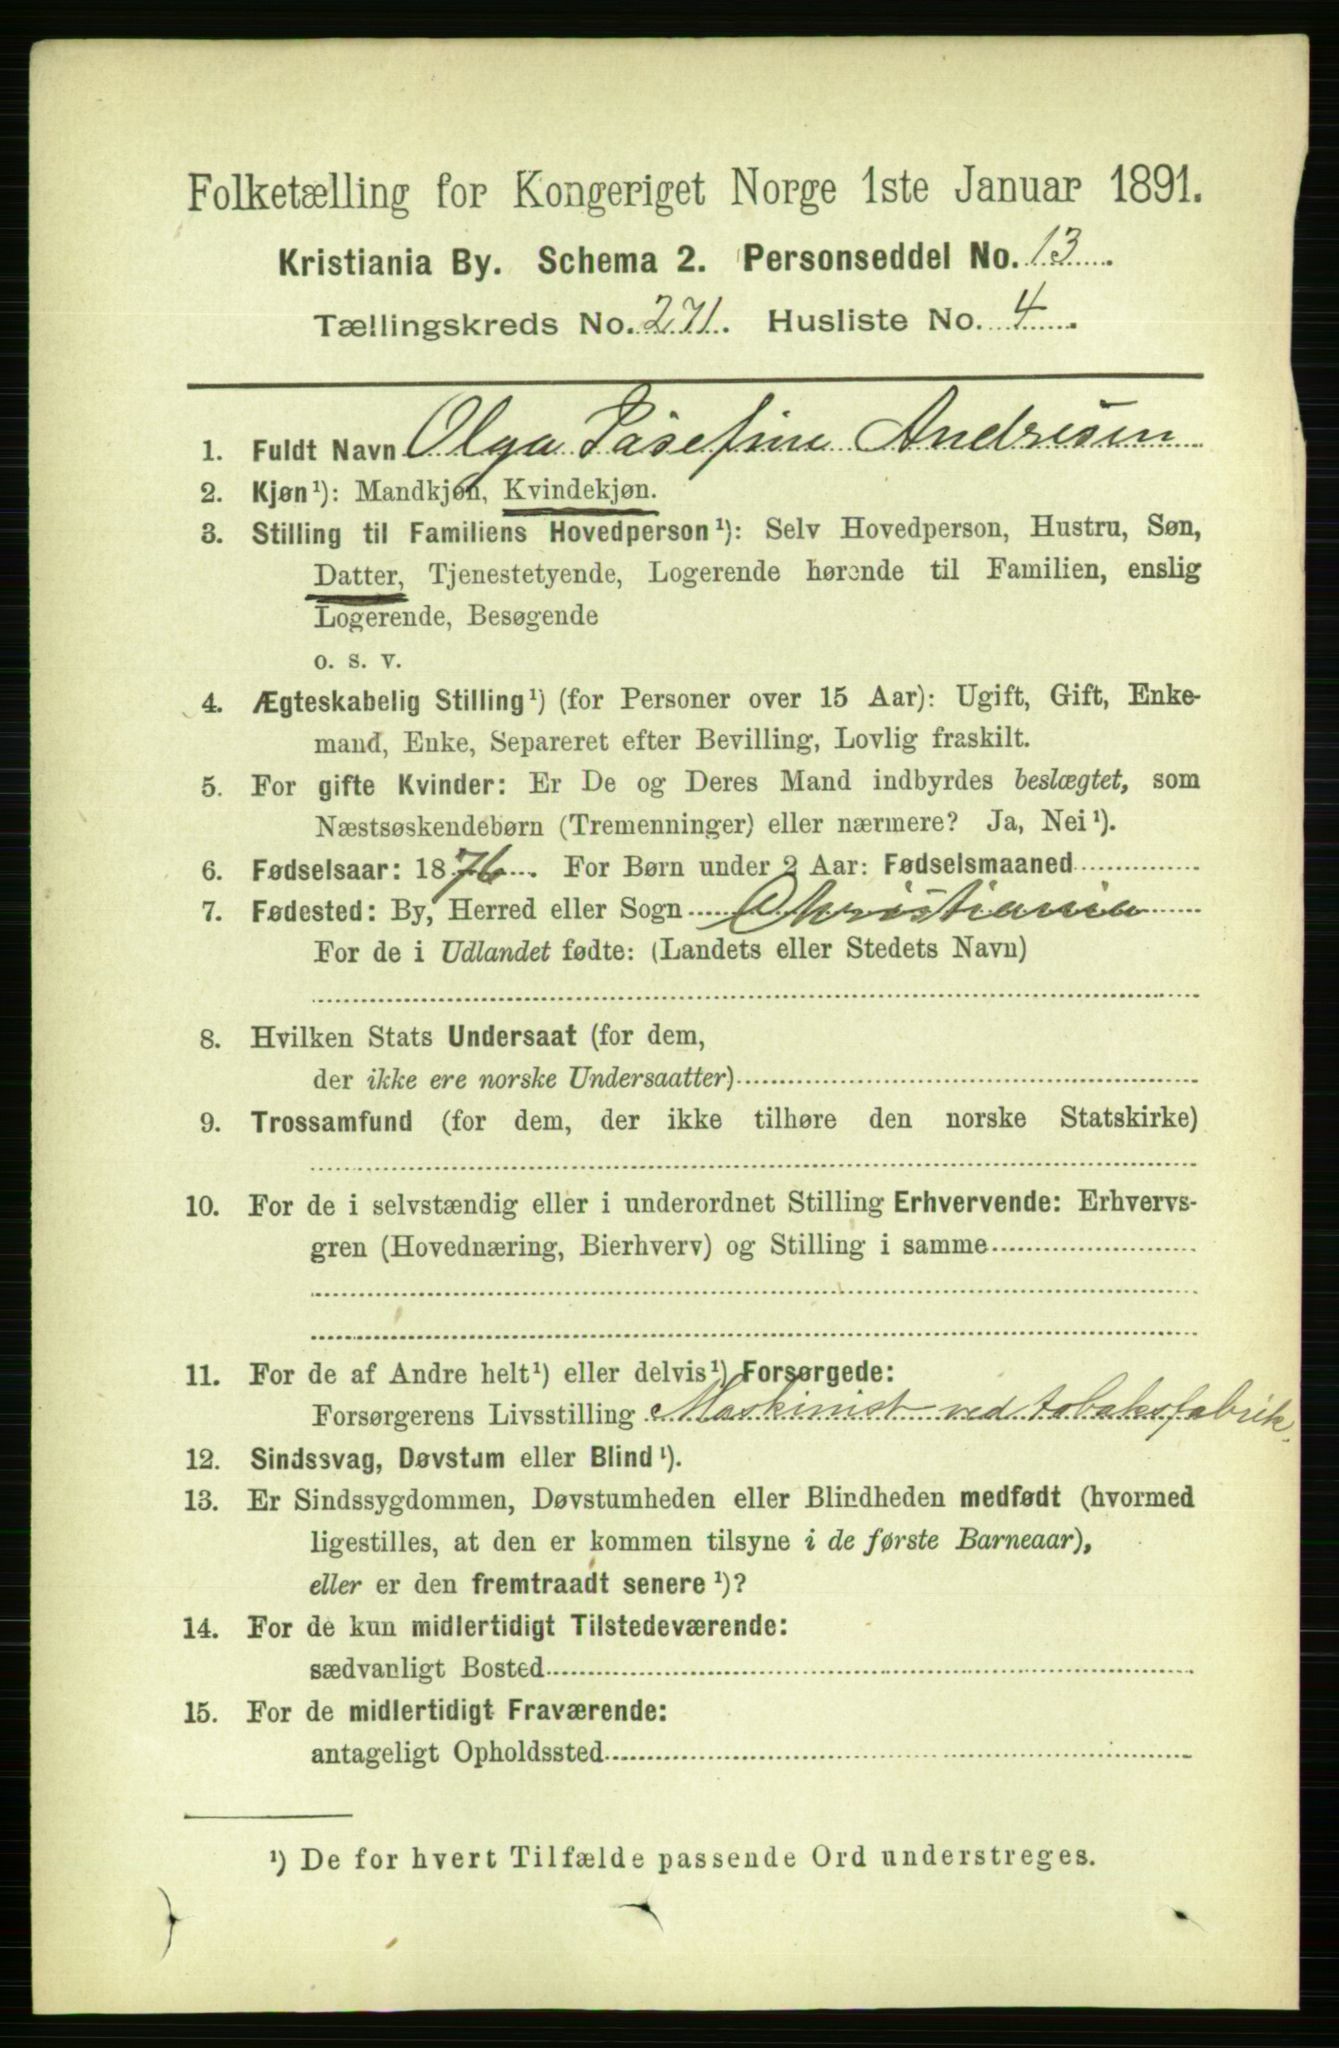 Folketælling for Kongeriget Norge 1ste Januar 1891.
Kristiania By. Schema 2. Personseddel No. 13
Tællingskreds No. 271. Husliste No. 4
1. Fuldt Navn Olga Josefine Andresen
2. Kjøn¹): Mandkjøn, Kvindekjøn.
3. Stilling til Familiens Hovedperson¹): Selv Hovedperson, Hustru, Søn,
Datter, Tjenestetyende, Logerende hørende til Familien, enslig
Logerende, Besøgende
o. s. v.
4. Ægteskabelig Stilling¹) (for Personer over 15 Aar): Ugift, Gift, Enke-
mand, Enke, Separeret efter Bevilling, Lovlig fraskilt.
5. For gifte Kvinder: Er De og Deres Mand indbyrdes beslægtet, som
Næstsøskendebørn (Tremenninger) eller nærmere? Ja, Nei¹).
6. Fødselsaar: 1876. For Børn under 2 Aar: Fødselsmaaned
7. Fødested: By, Herred eller Sogn Christiania
For de i Udlandet fødte: (Landets eller Stedets Navn)
8. Hvilken Stats Undersaat (for dem,
der ikke ere norske Undersaatter)
9. Trossamfund (for dem, der ikke tilhøre den norske Statskirke)
10. For de i selvstændig eller i underordnet Stilling Erhvervende: Erhvervs-
gren (Hovednæring, Bierhverv) og Stilling i samme
11. For de af Andre helt¹) eller delvis¹) Forsørgede:
Forsørgerens Livsstilling Maskinist ved tobaksfabrik.
12. Sindssvag, Døvstum eller Blind¹).
13. Er Sindssygdommen, Døvstumheden eller Blindheden medfødt (hvormed
ligestilles, at den er kommen tilsyne i de første Barneaar),
eller er den fremtraadt senere¹)?
14. For de kun midlertidigt Tilstedeværende:
sædvanligt Bosted
15. For de midlertidigt Fraværende:
antageligt Opholdssted
¹) De for hvert Tilfælde passende Ord understreges.